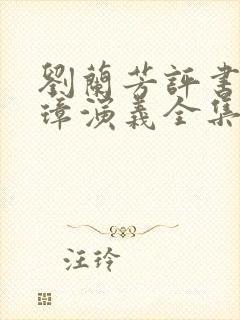 劉蘭芳評書
璋演義全集
汪玲